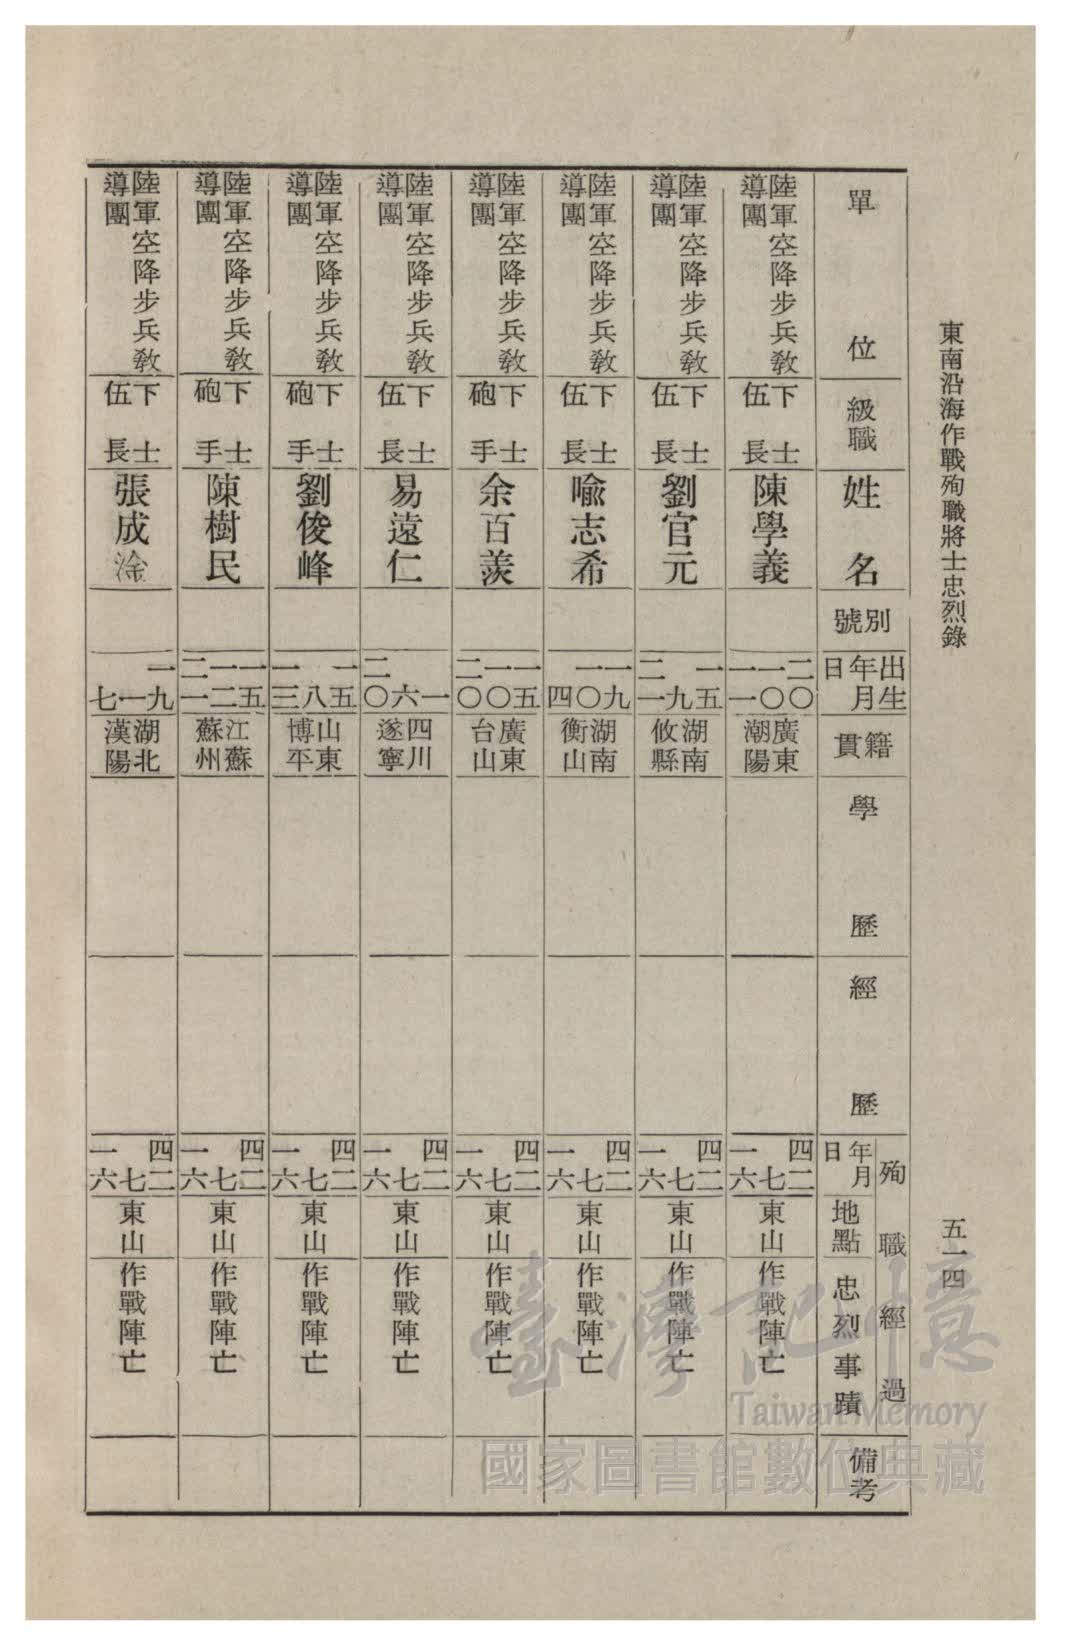 東南沿海作戰殉職將士忠烈錄
五一四
單位
級職
姓名
別號
出生年月日
籍貫
學歷
經歷
殉職經過
年月日
地點
忠烈事蹟
備考
陸軍空降步兵教導團
下士伍長
陳學義
二〇 一〇 一一
廣東潮陽
四二 七 一六
東山
作戰陣亡
陸軍空降步兵教導團
下士伍長
劉官元
一五 九 二一
湖南攸縣
四二 七 一六
東山
作戰陣亡
陸軍空降步兵教導團
下士伍長
喩志希
一九 一〇 四
湖南衡山
四二 七 一六
東山
作戰陣亡
陸軍空降步兵教導團
下士砲手
余百羨
一五 一〇 二〇
廣東台山
四二 七 一六
東山
作戰陣亡
陸軍空降步兵教導團
下士伍長
易遠仁
一 六 二〇
四川遂寧
四二 七 一六
東山
作戰陣亡
陸軍空降步兵教導團
下士砲手
劉俊峰
一五 八 一三
山東博平
四二 七 一六
東山
作戰陣亡
陸軍空降步兵教導團
下士砲手
陳樹民
一五 一二 二一
江蘇蘇州
四二 七 一六
東山
作戰陣亡
陸軍空降步兵教導團
下士伍長
張成淦
一九 一 七
湖北漢陽
四二 七 一六
東山
作戰陣亡
臺灣記憶
Taiwan Memory
國家圖書館數位典藏